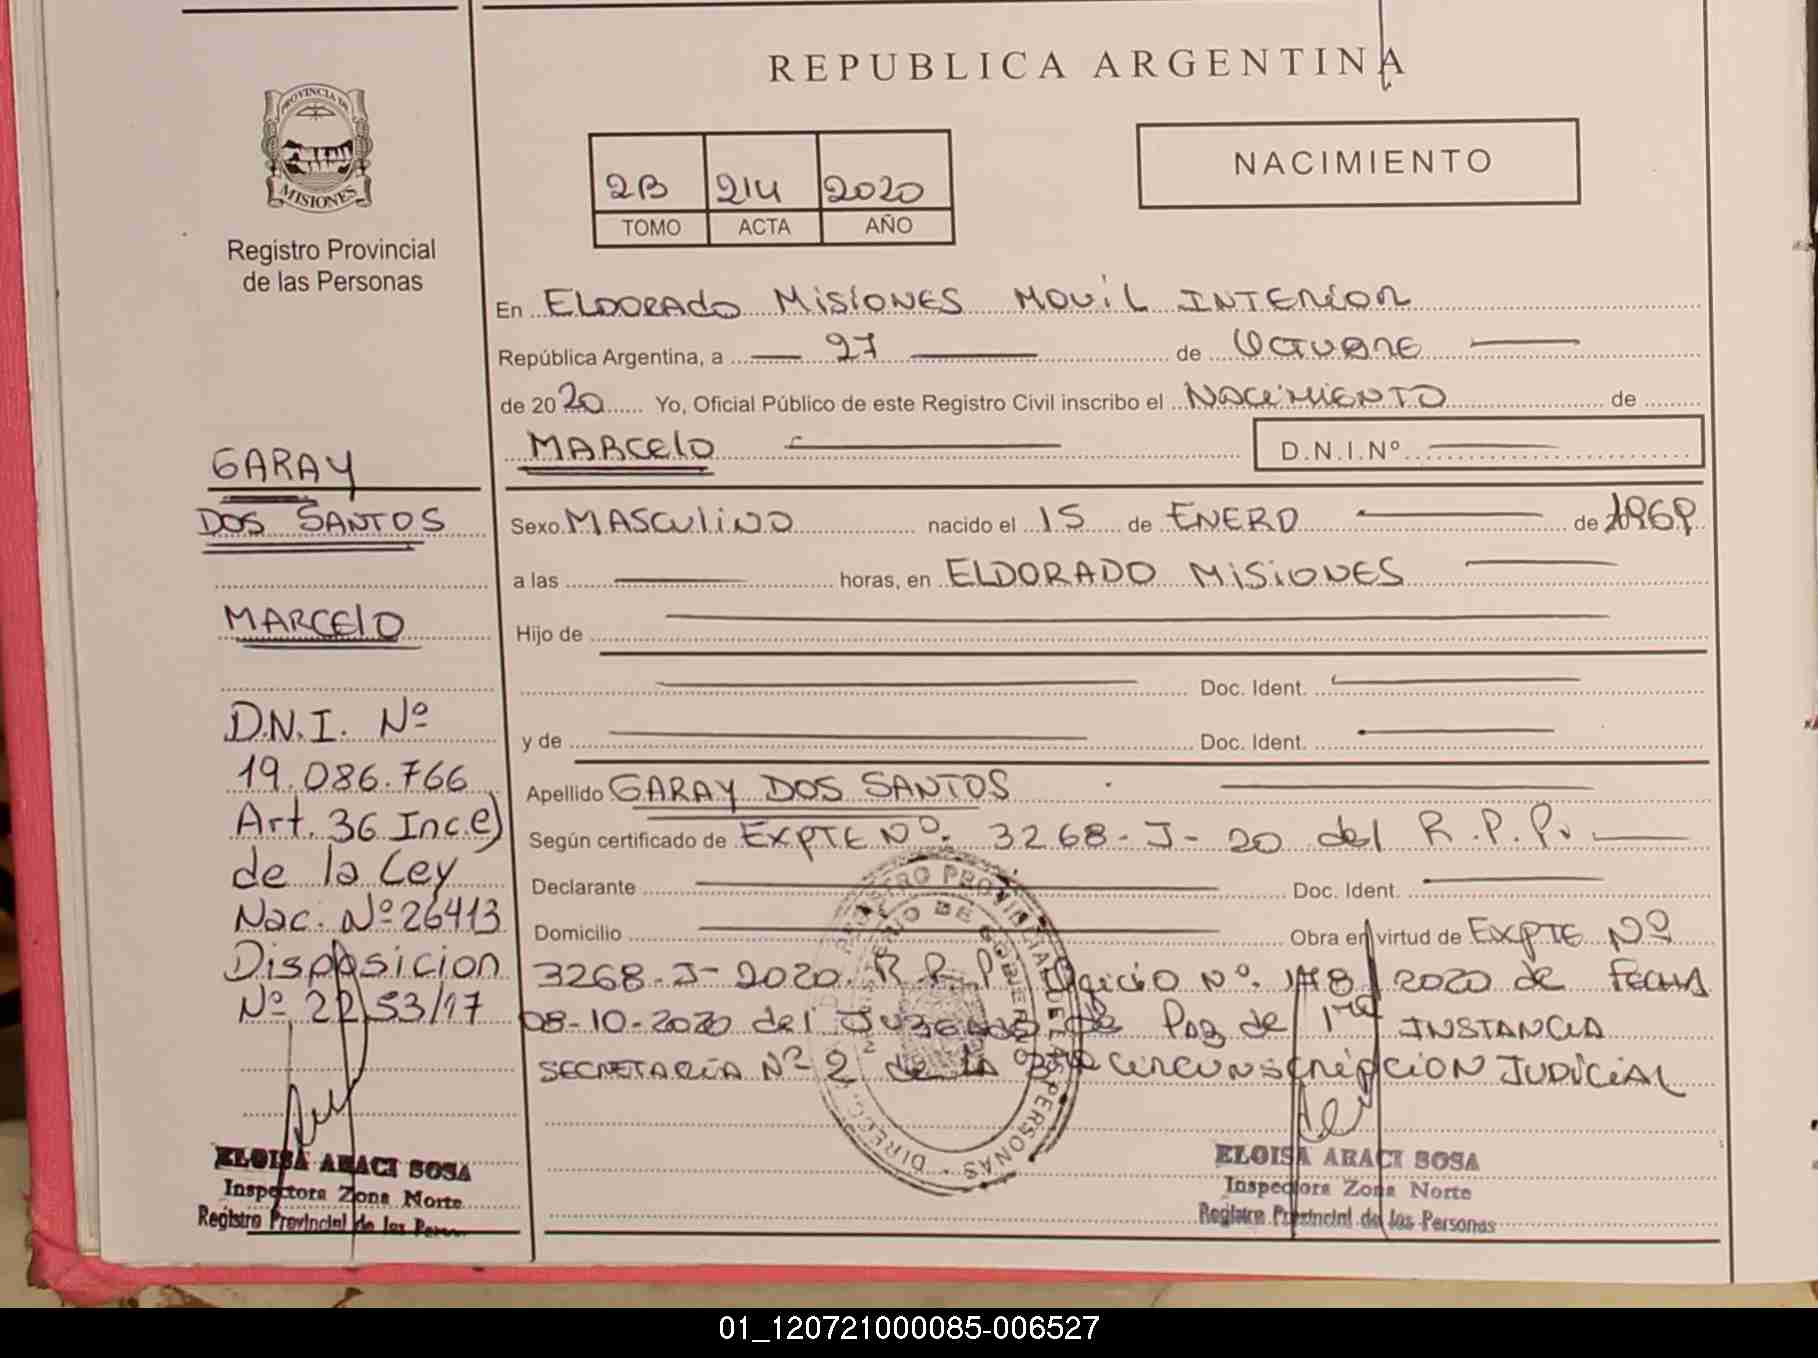 REPUBLICA ARGENTINA
PROVINCIA DE
MISIONES
Registro Provincial
de las Personas
2B 214 2020
TOMO ACTA AÑO
NACIMIENTO
En ELDORADO MISIONES MOVIL INTERIOR
República Argentina, a 27 de OCTUBRE
de 2020 Yo, Oficial Público de este Registro Civil inscribo el NACIMIENTO de
MARCELO D.N.I.Nº
Sexo MASCULINO nacido el 15 de ENERO de
a las horas, en ELDORADO MISIONES
Hijo de
Doc. Ident.
y de Doc. Ident.
Apellido GARAY DOS SANTOS
Según certificado de EXPTE Nº. 3268-J-20 del R.P.P.
Declarante Doc. Ident.
Domicilio Obra en virtud de EXPTE Nº
3268-J-2020 R.R.P. Oficio Nº. 2020 de FECHA
08-10-2020 del JUZGADO de Paz de 1ra INSTANCIA
SECRETARÍA Nº 2 de LA CIRCUNSCRIPCION JUDICIAL
ELOISA ARACI SOSA
Inspectora Zona Norte
Registro Provincial de las Personas
GARAY
DOS SANTOS
MARCELO
D.N.I. Nº
19.086.766
Art. 36 Inc.e)
de la Ley
Nac. Nº 26413
Disposicion
Nº 2253/17
ELOISA ARACI SOSA
Inspectora Zona Norte
Registro Provincial de las
REGISTRO PROVINCIAL DE LAS PERSONAS
MINISTERIO DE GOBIERNO
01_120721000085-006527